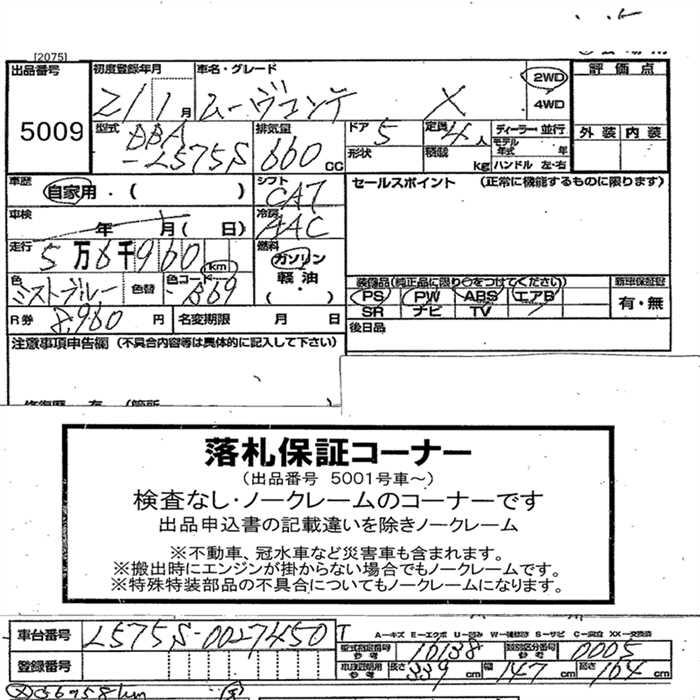 [2075]
出品番号 5009
初度登録年月 21年1月
車名・グレード ムーヴコンテ X
2WD
4WD
評価点
外装 内装
型式 DBA-L575S
排気量 660 CC
ドア 5
定員 4人
ディーラー・並行
形状
積載 kg
モデル年式 年
ハンドル 左・右
車歴 自家用・( )
シフト CAT
セールスポイント (正常に機能するものに限ります)
車検 年 月 ( 日)
冷房 AAC
走行 5万6千960 km
燃料 ガソリン
軽油
( ・ )
色 ミストブルー
色替
色コード
装備品(純正品に限り○をつけてください)
新車保証書
PS PW ABS エアB
有・無
SR ナビ TV
R券 8,960 円
名変期限 月 日
後日品
注意事項申告欄 (不具合内容等は具体的に記入して下さい)
落札保証コーナー
(出品番号 5001号車~)
検査なし・ノークレームのコーナーです
出品申込書の記載違いを除きノークレーム
※不動車、冠水車など災害車も含まれます。
※搬出時にエンジンが掛からない場合でもノークレームです。
※特殊特装部品の不具合についてもノークレームになります。
車台番号 L575S-0027450
A-キズ E-エクボ U-凹み W-補修跡 S-サビ C-腐食 XX-交換済
型式指定番号 参考 10138
類別区分番号 参考 0005
登録番号
長さ 339 cm 幅 147 cm 高さ 164 cm